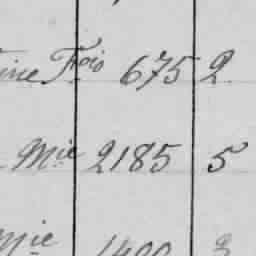 Fçois 675 2
Mie 2185 5
Mie 1400 3